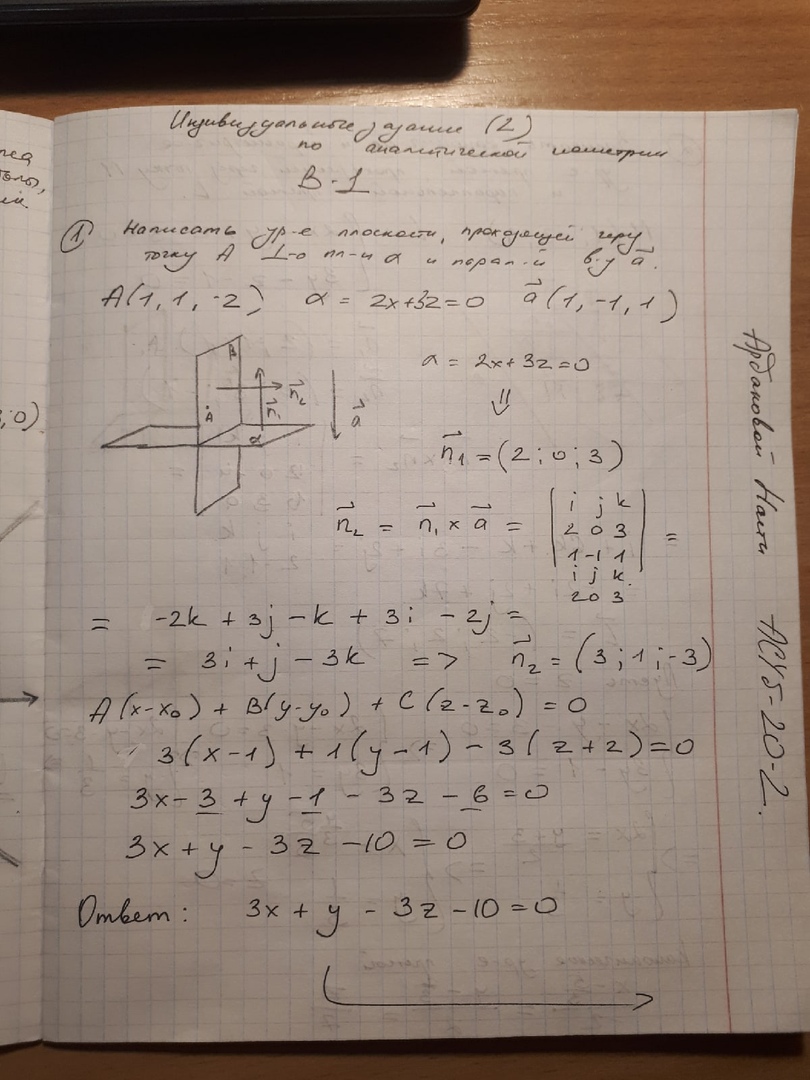 Индивидуальное задание (2)
по аналитической геометрии
В-1
① Написать ур-е плоскости, проходящей через
точку А ⊥-о пл-и α и парал-й в-у a⃗.
A(1, 1, -2) α = 2x+3z=0 a⃗ (1, -1, 1)
B
n⃗₂
n⃗₁
A
α
a⃗
α = 2x+3z=0
⇓
n⃗₁ = (2; 0; 3)
n⃗₂ = n⃗₁ × a⃗ = | i j k
2 0 3
1 -1 1 | =
i j k
2 0 3
= -2k + 3j - k + 3i - 2j =
= 3i + j - 3k => n⃗₂ = (3; 1; -3)
A(x-x₀) + B(y-y₀) + C(z-z₀) = 0
3(x-1) + 1(y-1) - 3(z+2)=0
3x - 3 + y - 1 - 3z - 6 = 0
3x + y - 3z - 10 = 0
Ответ: 3x + y - 3z - 10 = 0
Ардановой Насти АСУб-20-2.
; 0)